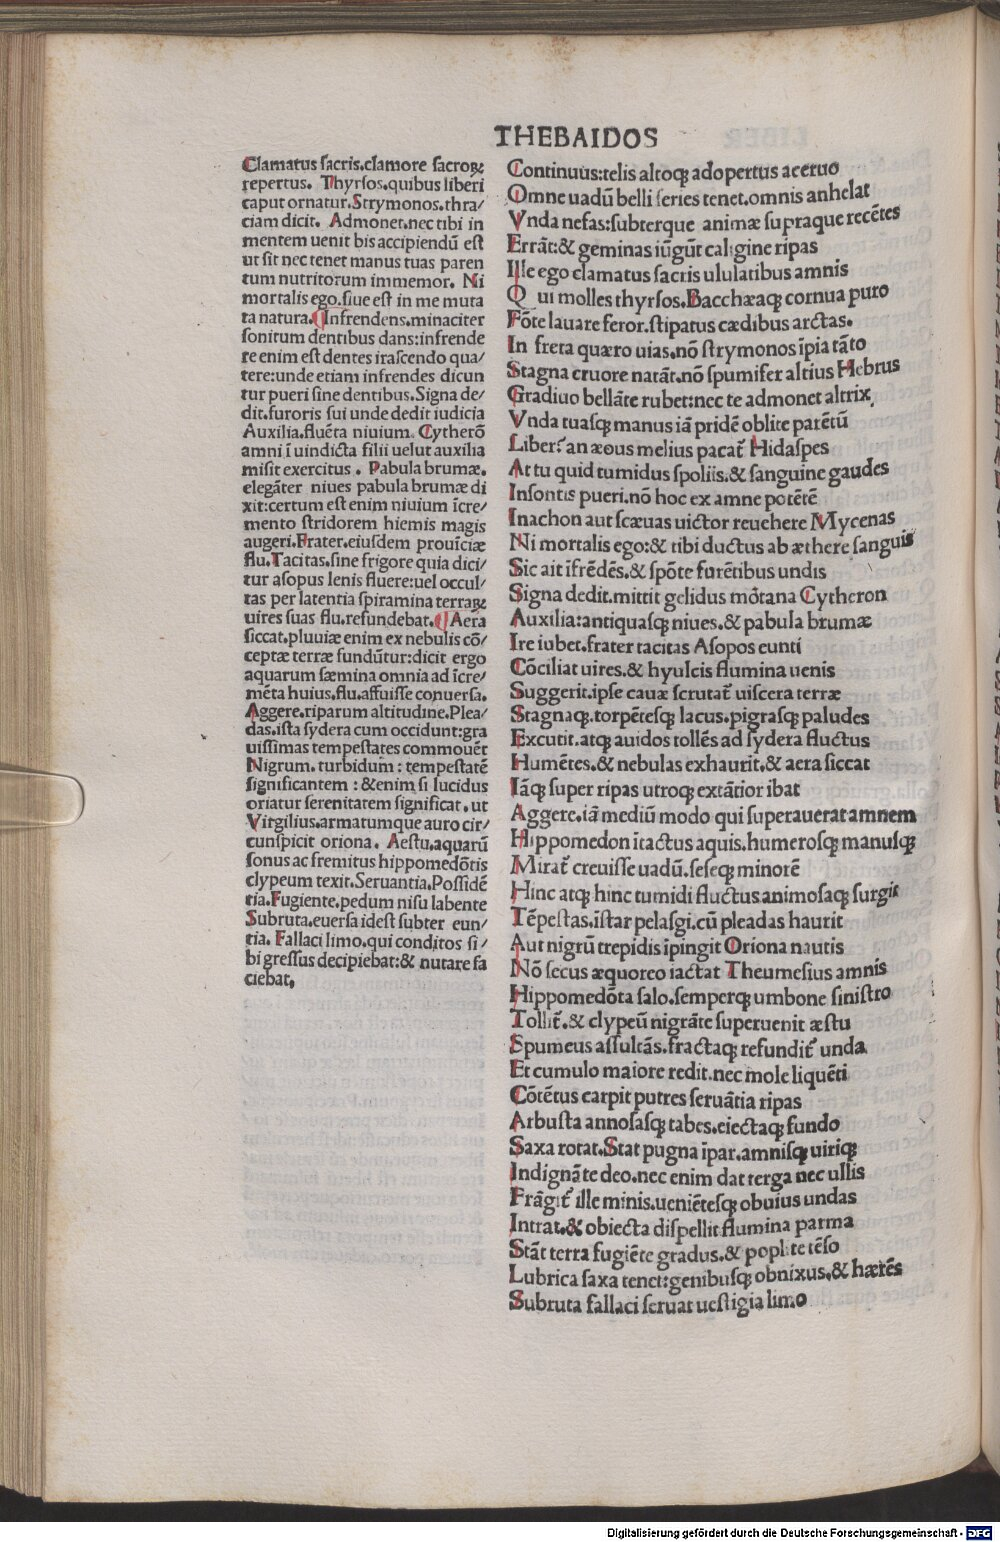 THEBAIDOS
Clamatus sacris.clamore sacroꝝ
repertus. Thyrsos.quibus liberi
caput ornatur.Strymonos.thra/
ciam dicit. Admonet.nec tibi in
mentem uenit bis accipiendū est
ut sit nec tenet manus tuas paren
tum nutritorum immemor. Ni
mortalis ego.siue est in me muta
ta natura.¶Infrendens.minaciter
sonitum dentibus dans:infrende
re enim est dentes irascendo qua/
tere:unde etiam infrendes dicun
tur pueri sine dentibus.Signa de/
dit.furoris sui unde dedit iudicia
Auxilia.fluēta niuium. Cytherō
amni ī uindicta filii uelut auxilia
misit exercitus . Pabula brumæ.
elegāter niues pabula brumæ di
xit:certum est enim niuium īcre/
mento stridorem hiemis magis
augeri.Frater.eiusdem prouīciæ
flu.Tacitas.sine frigore quia dici/
tur asopus lenis fluere:uel occul/
tas per latentia spiramina terraꝝ
uires suas flu.refundebat.¶Aera
siccat.pluuiæ enim ex nebulis cō/
ceptæ terræ fundūtur:dicit ergo
aquarum sæmina omnia ad īcre/
mēta huius.flu.affuisse conuersa.
Aggere.riparum altitudine.Plea/
das.ista sydera cum occidunt:gra
uissimas tempestates commouēt
Nigrum. turbidum : tempestatē
significantem : & enim si lucidus
oriatur serenitatem significat. ut
Virgilius.armatumque auro cir/
cunspicit oriona. Aestu.aquarū
sonus ac fremitus hippomedōtis
clypeum texit.Seruantia.Possidē
tia.Fugiente.pedum nisu labente
Subruta.euersa idest subter eun/
tia. Fallaci limo.qui conditos si/
bi gressus decipiebat:& nutare fa
ciebat.
Continuus:telis altoqꝫ adopertus aceruo
Omne uadū belli series tenet.omnis anhelat
Vnda nefas:subterque animæ supraque recētes
Errāt:& geminas iūgūt caligine ripas
Ille ego clamatus sacris ululatibus amnis
Q ui molles thyrsos.Bacchæaqꝫ cornua puro
Fōte lauare feror.stipatus cædibus arctas.
In freta quæro uias.nō strymonos īpia tāto
Stagna cruore natāt.nō spumifer altius Hebrus
Gradiuo bellāte rubet:nec te admonet altrix
Vnda tuasqꝫ manus iā pridē oblite parētū
Liber? an æous melius pacat᷑ Hidaspes
At tu quid tumidus spoliis.& sanguine gaudes
Insontis pueri.nō hoc ex amne potētē
Inachon aut scæuas uictor reuehere Mycenas
Ni mortalis ego:& tibi ductus ab æthere sanguis
Sic ait īfrēdēs.& spōte furētibus undis
Signa dedit.mittit gelidus mōtana Cytheron
Auxilia:antiquasqꝫ niues.& pabula brumæ
Ire iubet.frater tacitas Asopos eunti
Cōciliat uires.& hyulcis flumina uenis
Suggerit.ipse cauæ scrutat᷑ uiscera terræ
Stagnaqꝫ.torpētesqꝫ lacus.pigrasqꝫ paludes
Excutit.atqꝫ auidos tollēs ad sydera fluctus
Humētes.& nebulas exhaurit.& aera siccat
Iāqꝫ super ripas utroqꝫ extātior ibat
Aggere.iā mediū modo qui superauerat amnem
Hippomedon ītactus aquis.humerosqꝫ manusqꝫ
Mirat᷑ creuisse uadū.seseqꝫ minorē
Hinc atqꝫ hinc tumidi fluctus animosaqꝫ surgit
Tēpestas.īstar pelasgi.cū pleadas haurit
Aut nigrū trepidis īpingit Oriona nautis
Nō secus æquoreo iactat Theumesius amnis
Hippomedōta salo.semperqꝫ umbone sinistro
Tollit᷑.& clypeū nigrāte superuenit æstu
Spumeus assultās.fractaqꝫ refundit᷑ unda
Et cumulo maiore redit.nec mole liquēti
Cōtētus carpit putres seruātia ripas
Arbusta annosasqꝫ tabes.eiectaqꝫ fundo
Saxa rotat.Stat pugna īpar.amnisqꝫ uiriqꝫ
Indignāte deo.nec enim dat terga nec ullis
Frāgit᷑ ille minis.ueniētesqꝫ obuius undas
Intrat.& obiecta dispellit flumina parma
Stāt terra fugiēte gradus.& poplite tēso
Lubrica saxa tenet:genibusqꝫ obnixus.& hærēs
Subruta fallaci seruat uestigia limo
Digitalisierung gefördert durch die Deutsche Forschungsgemeinschaft - DFG